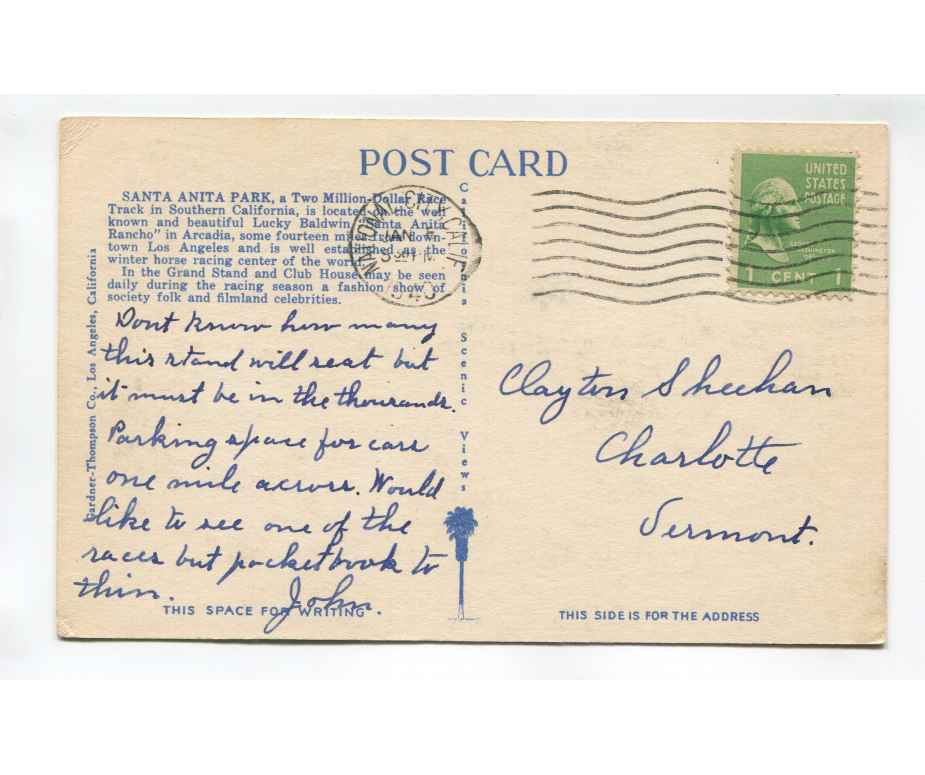 POST CARD
SANTA ANITA PARK, a Two Million-Dollar Race
Track in Southern California, is located on the well
known and beautiful Lucky Baldwin "Santa Anita
Rancho" in Arcadia, some fourteen miles from down-
town Los Angeles and is well established as the
winter horse racing center of the world.
In the Grand Stand and Club House may be seen
daily during the racing season a fashion show of
society folk and filmland celebrities.
Dont know how many
this stand will seat but
it must be in the thousands.
Parking space for cars
one mile across. Would
like to see one of the
races but pocketbook to
thin. John.
THIS SPACE FOR WRITING
Gardner-Thompson Co., Los Angeles, California
California Scenic Views
NATIONAL CITY, CALIF.
JAN
1940
UNITED
STATES
POSTAGE
WASHINGTON
1 CENT 1
Clayton Sheehan
Charlotte
Vermont.
THIS SIDE IS FOR THE ADDRESS